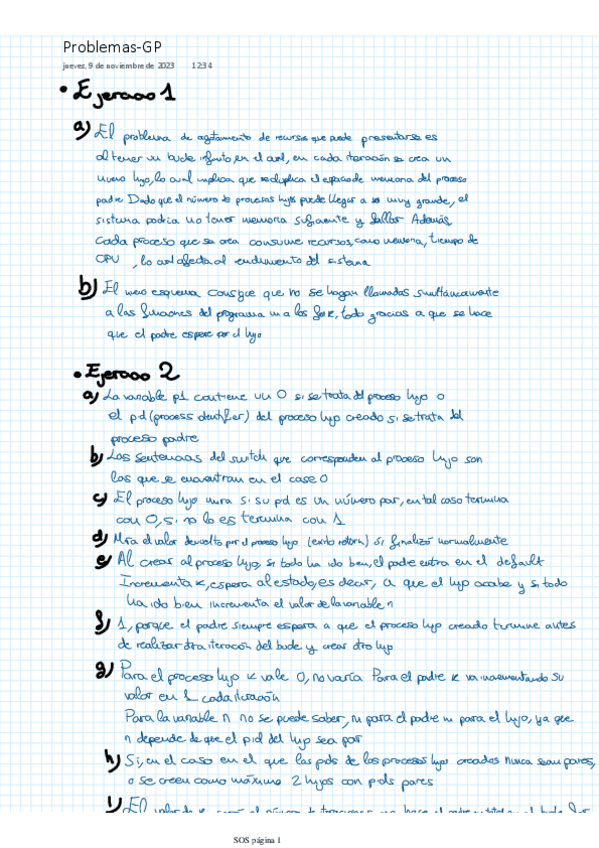 Problemas-GP
jueves, 9 de noviembre de 2023 12:34
• Ejercicio 1
a) El problema de agotamiento de recursos que puede presentarse es
al tener un bucle infinito, en el cual, en cada iteración se crea un
nuevo hijo, lo cual implica que se duplica el espacio de memoria del proceso
padre Dado que el número de procesos hijos puede llegar a ser muy grande, el
sistema podría no tener memoria suficiente y fallar Además,
cada proceso que se crea consume recursos, como memoria, tiempo de
CPU, lo cual afecta al rendimiento del sistema
b) El nuevo esquema consigue que no se hagan llamadas simultáneamente
a las funciones del programa ni a los fork, todo gracias a que se hace
que el padre espere por el hijo
• Ejercicio 2
a) La variable p1 contiene un 0 si se trata del proceso hijo o
el pid (process identifier) del proceso hijo creado si se trata del
proceso padre
b) Las sentencias del switch que corresponden al proceso hijo son
las que se encuentran en el case 0
c) El proceso hijo mira si su pid es un número par, en tal caso termina
con 0, si no lo es termina con 1
d) Mira el valor devuelto por el proceso hijo (exito retorn) si finalizó normalmente
e) Al crear al proceso hijo, si todo ha ido bien, el padre entra en el default
Incrementa k, espera al estado, es decir, a que el hijo acabe y si todo
ha ido bien incrementa el valor de la variable n
f) 1, porque el padre siempre espera a que el proceso hijo creado termine antes
de realizar otra iteración del bucle y crear otro hijo
g) Para el proceso hijo k vale 0, no varía Para el padre k va incrementando su
valor en 1 cada iteración
Para la variable n no se puede saber, ni para el padre ni para el hijo, ya que
n depende de que el pid del hijo sea par
h) Si, en el caso en el que los pids de los procesos hijos creados nunca sean pares,
o se creen como máximo 2 hijos con pids pares
i) El valor de k
SOS página 1